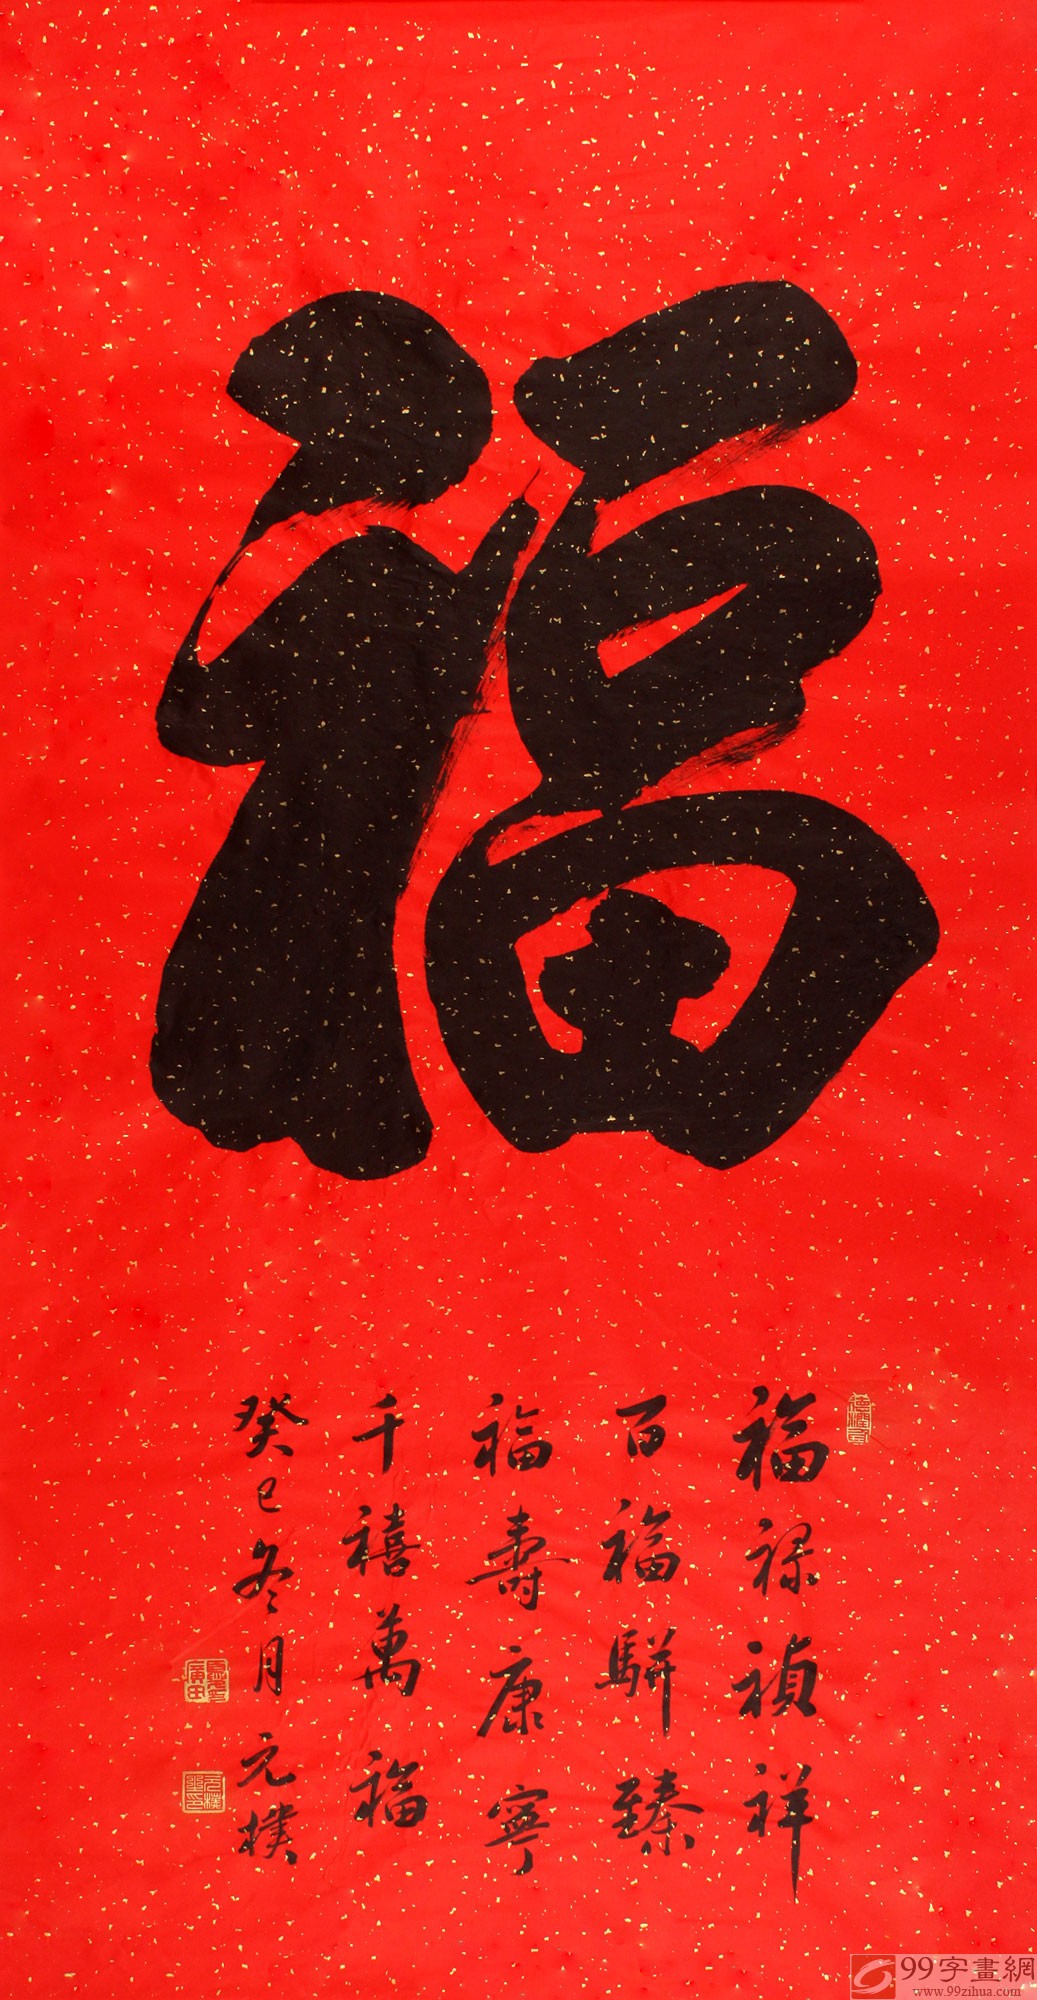 福
福祿禎祥
百福駢臻
福壽康寧
千禧萬福
癸巳冬月元樸
99字畫網
www.99zihua.com